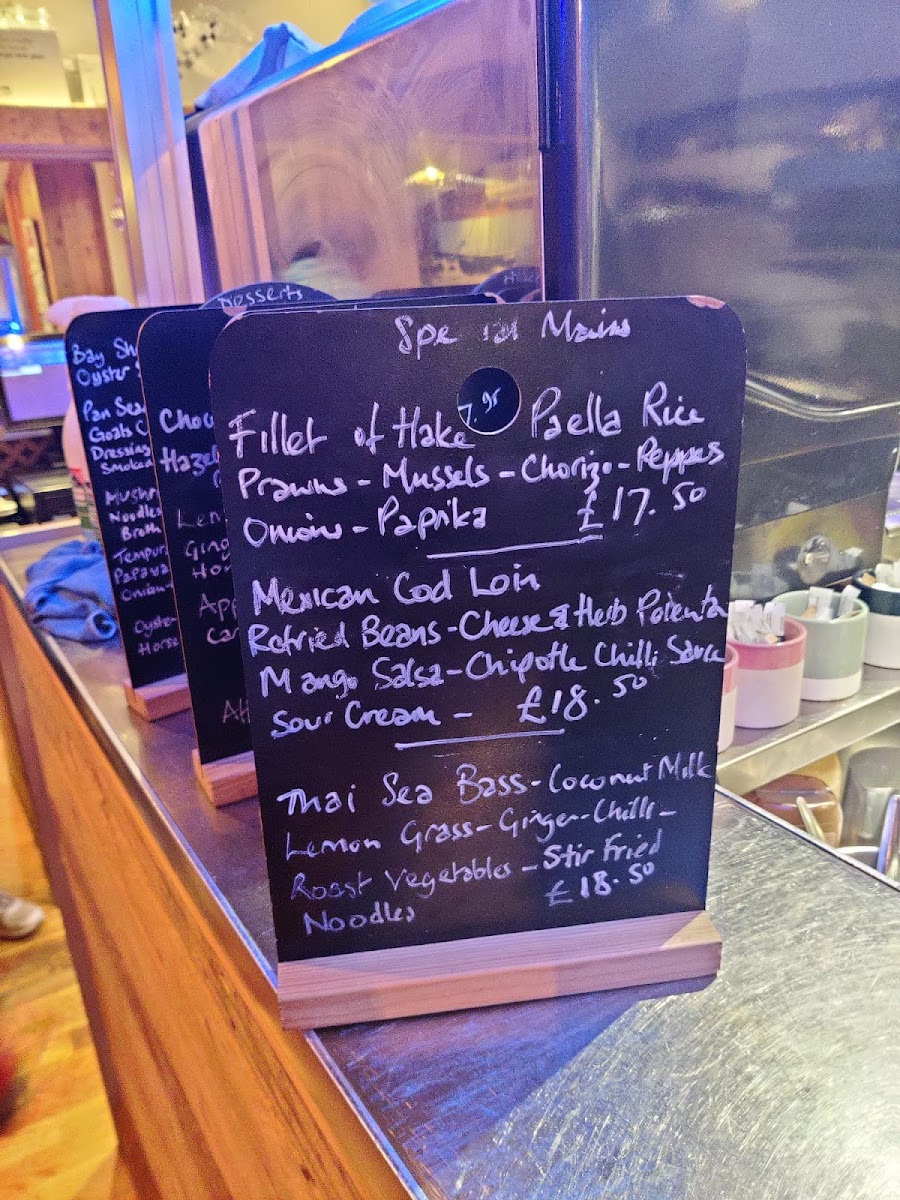 Special Mains
Fillet of Hake Paella Rice
Prawns - Mussels - Chorizo - Peppers
Onions - Paprika £17.50
Mexican Cod Loin
Refried Beans - Cheese & Herb Polenta
Mango Salsa - Chipotle Chilli Sauce
Sour Cream - £18.50
Thai Sea Bass - Coconut Milk
Lemon Grass - Ginger - Chilli -
Roast Vegetables - Stir Fried
Noodles £18.50
7.95
Desserts
Choc
Haze
Lem
Ging
Hon
App
Car
Bay Sh
Oyster
Pan Sea
Goats C
Dressing
Smoked
Mushr
Noodles
Broth
Tempur
Papaya
Onion
Oyster
Horse